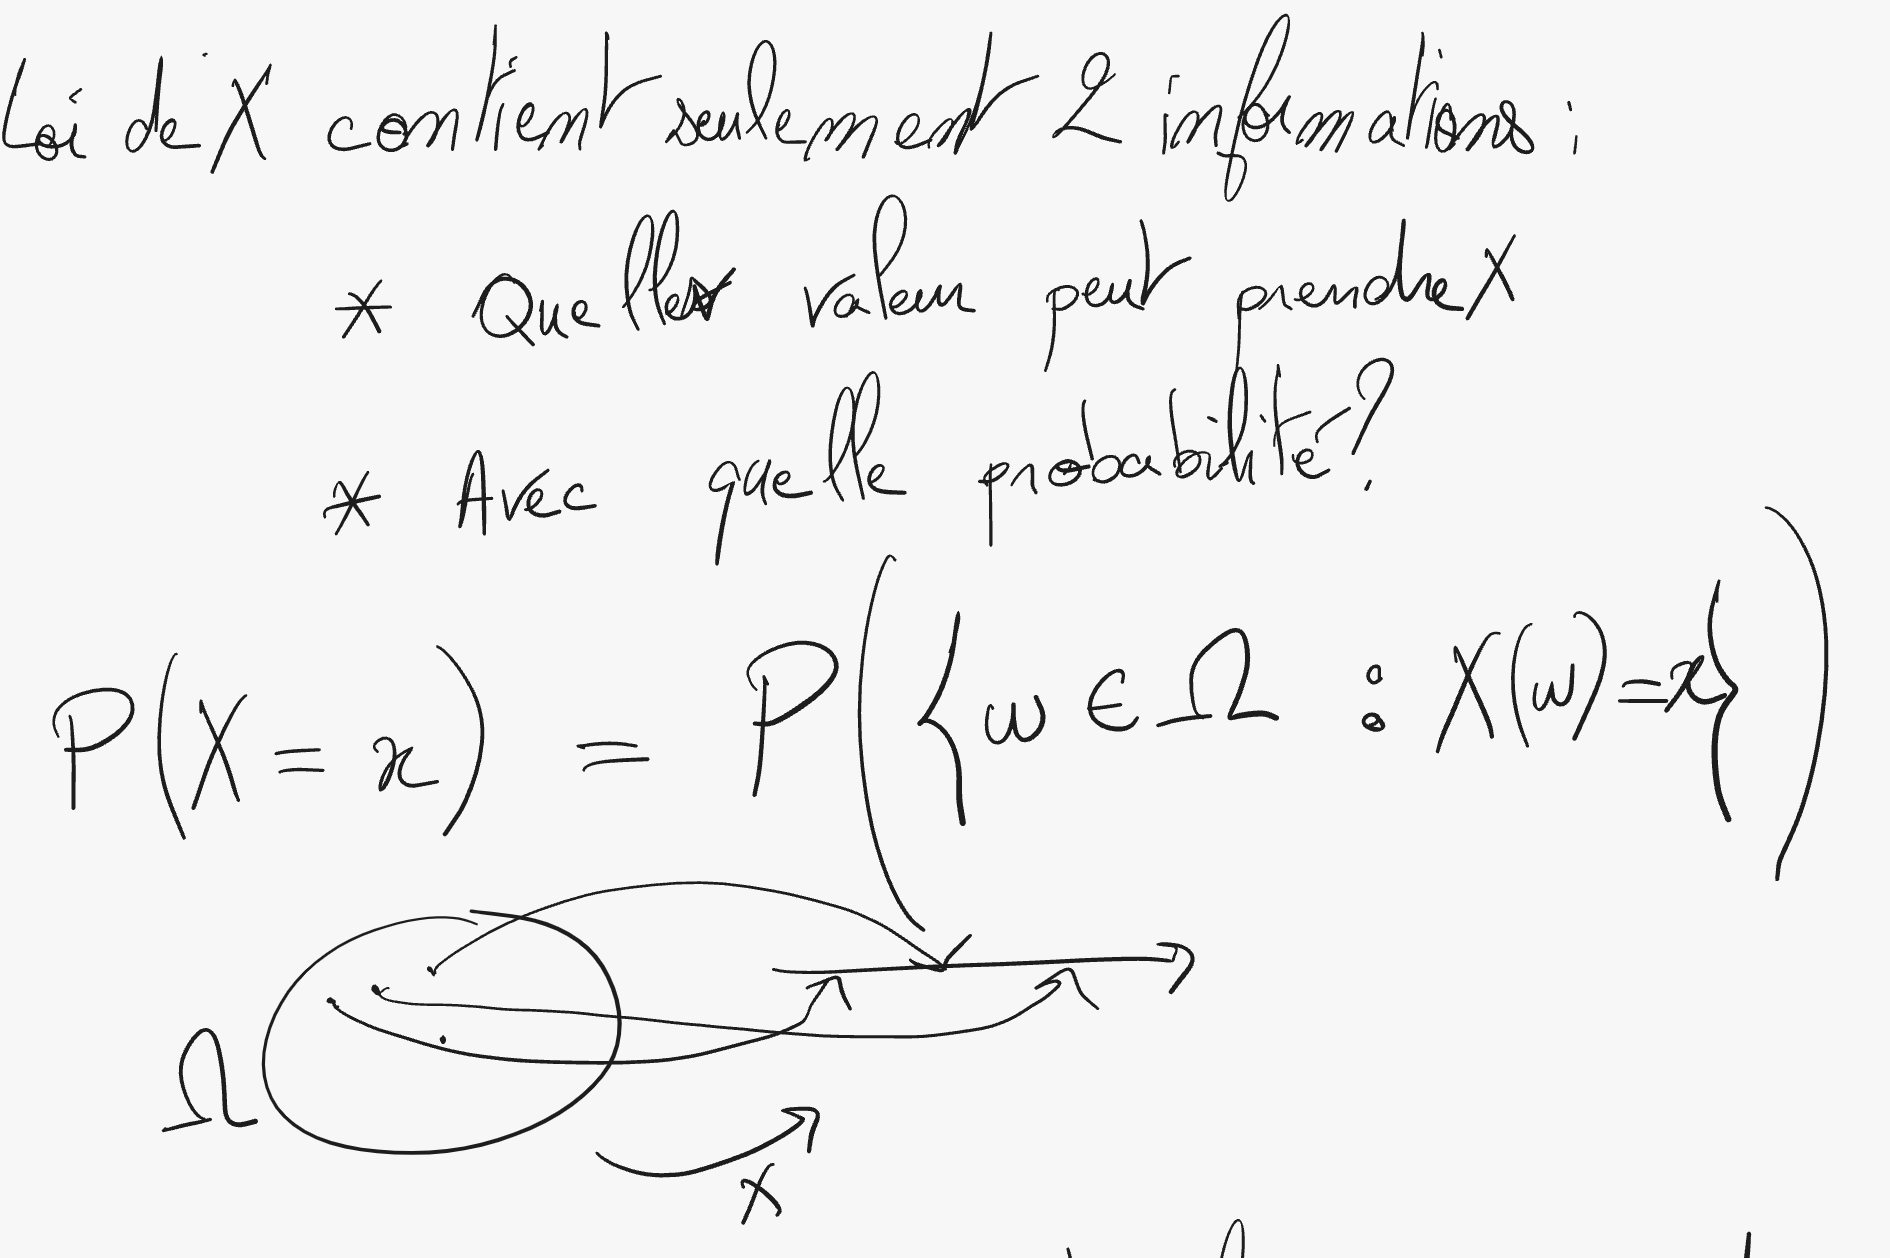 Loi de X contient seulement 2 informations :
* Quelle valeur peut prendre X
* Avec quelle probabilité ?
P(X = x) = P({ω ∈ Ω : X(ω) = x})
Ω
X